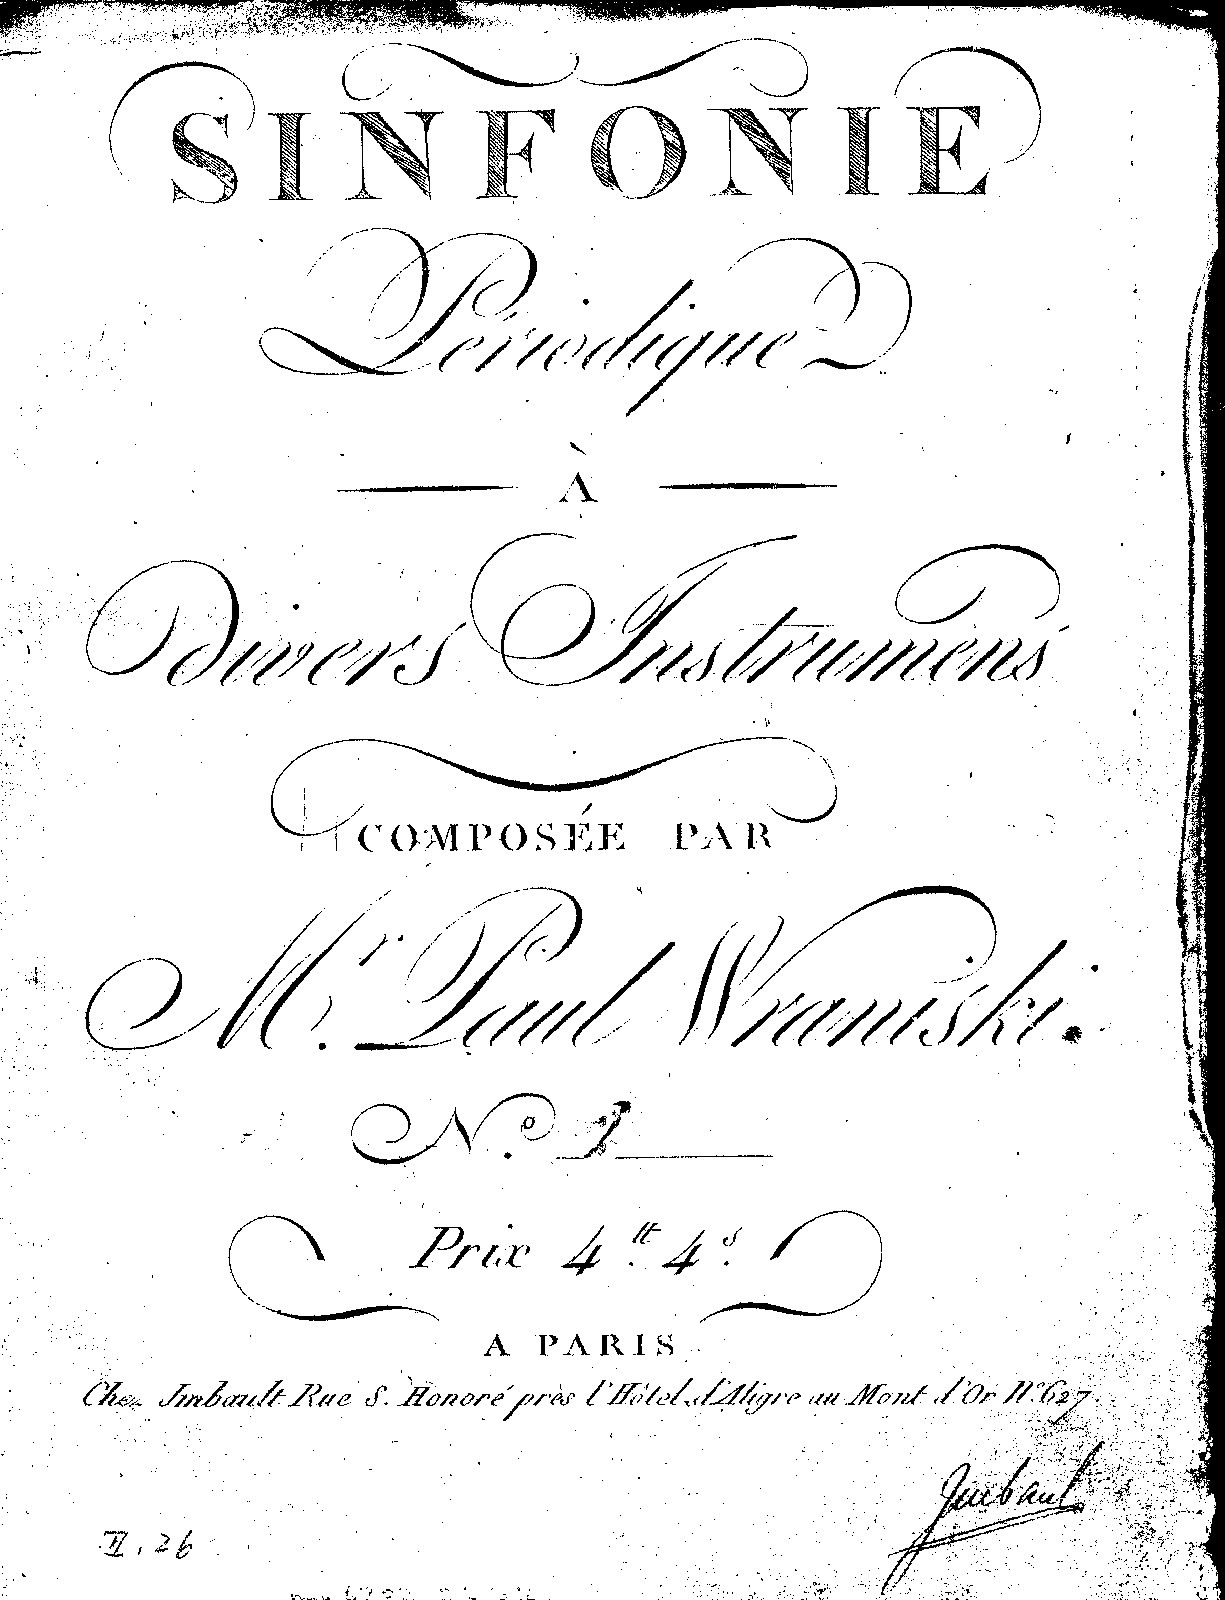 SINFONIE
Périodique
À
Divers Instrumens
COMPOSÉE PAR
M.r Paul Wraniski.
N.o
Prix 4.tt 4.s
A PARIS
Chez Jmbault Rue S. Honoré près l'Hôtel d'Aligre au Mont d'Or N.o 627
Jmbault
II. 26